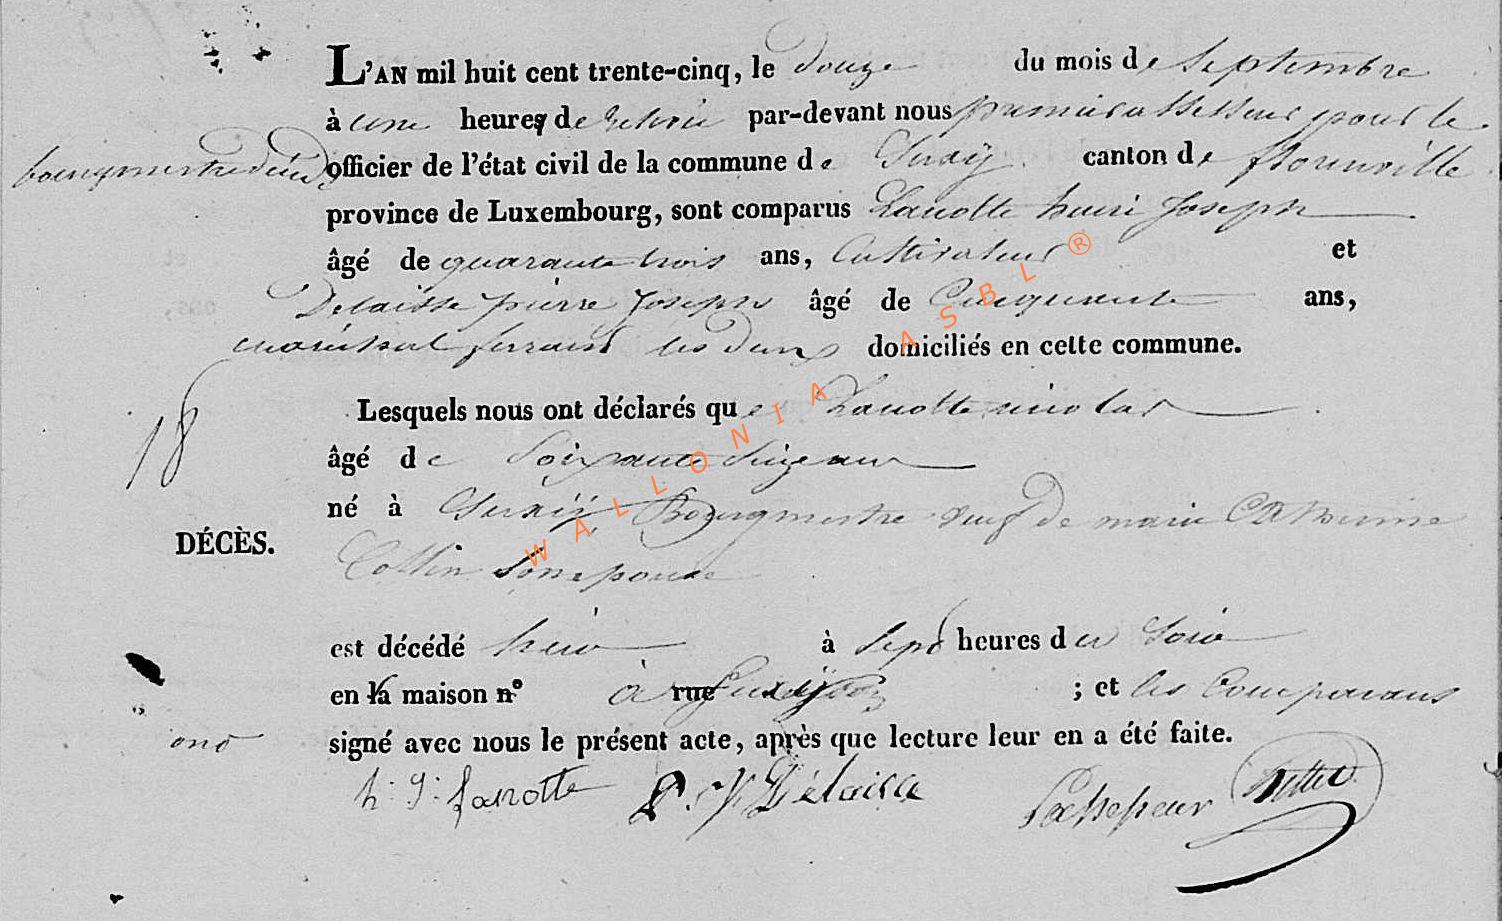 L'AN mil huit cent trente-cinq, le douze du mois de Septembre
à une heure de relevée par-devant nous premier assesseur pour le
bourgmestre décédé officier de l'état civil de la commune de Suxÿ canton de florenville
province de Luxembourg, sont comparus Lanotte henri Joseph
âgé de quarante trois ans, Cultivateur et
Delaisse pierre Joseph âgé de Cinquante ans,
maréchal ferrant les deux domiciliés en cette commune.
Lesquels nous ont déclarés que Lanotte nicolas
18
âgé de Soixante Seize ans
né à Suxÿ Bourgmestre veuf de marie Catherine
DÉCÈS.
Collin son epouse
est décédé hier à Sept heures du Soir
en la maison n° à rue Suxÿ ; et les Comparans
ont signé avec nous le présent acte, après que lecture leur en a été faite.
h: j: Lanotte P. J. Délaisse L'assesseur
WALLONIA ASBL ®